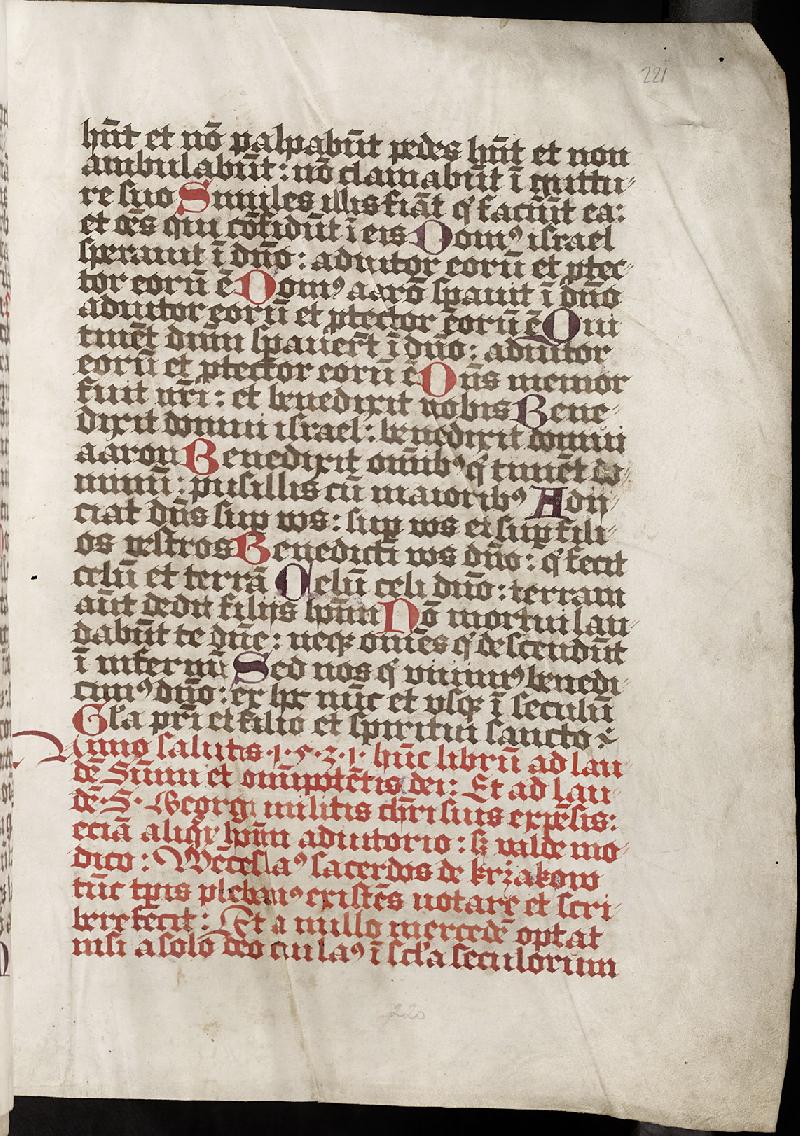 221
hn̄t et nō palpabūt pedes hn̄t et non
ambulabūt: nō clamabūt ī guttu
re suo Similes illis fiāt q̄ faciūt ea:
et oēs qui cōfidūt ī eis Domꝰ israel
speravit ī dn̄o: adiutor eorū et ꝓtec
tor eorū ē Domꝰ aarō spauit ī dn̄o
adiutor eorū et ꝓtector eorū ē Qui
timēt dnm spauer̄t ī dn̄o: adiutor
eorū et ꝓtector eorū ē Dn̄s memor
fuit nr̄i: et benedixit nobis Bene
dixit domui israel: benedixit domui
aaron Benedixit om̄ibꝰ q̄ timēt do
minū: pusillis cū maioribꝰ Adii
ciat dn̄s sup vos: sup vos et sup fili
os vestros Benedicti vos dn̄o: q̄ fecit
celū et terrā Celū celi dn̄o: terram
aūt dedit filiis hom̄n Nō mortui lau
dabūt te dn̄e: neqꝫ omēs q̄ descendūt
ī infernū Sed nos q̄ viuimꝰ benedi
cimꝰ dn̄o: ex hoc nūc et vsqꝫ ī seculū
Gl̄a pr̄i et filio et spiritui sancto
Anno salutis ·1·5·3·1· hūc librū ad lau
dē Sūmi et om̄ipotētis dei: Et ad lau
dē ·S· Georgi militis chr̄i suis expēsis:
eciā aliqꝫ hom̄n adiutorio: sꝫ valde mo
dico: Wēceslaꝰ sacerdos de krzakow
tūc tp̄is plebanꝰ existēs notare et scri
bere fecit: Et a nullo mercedē optat
nisi a solo deo cui laꝰ ī sc̄l'a seculorum
220